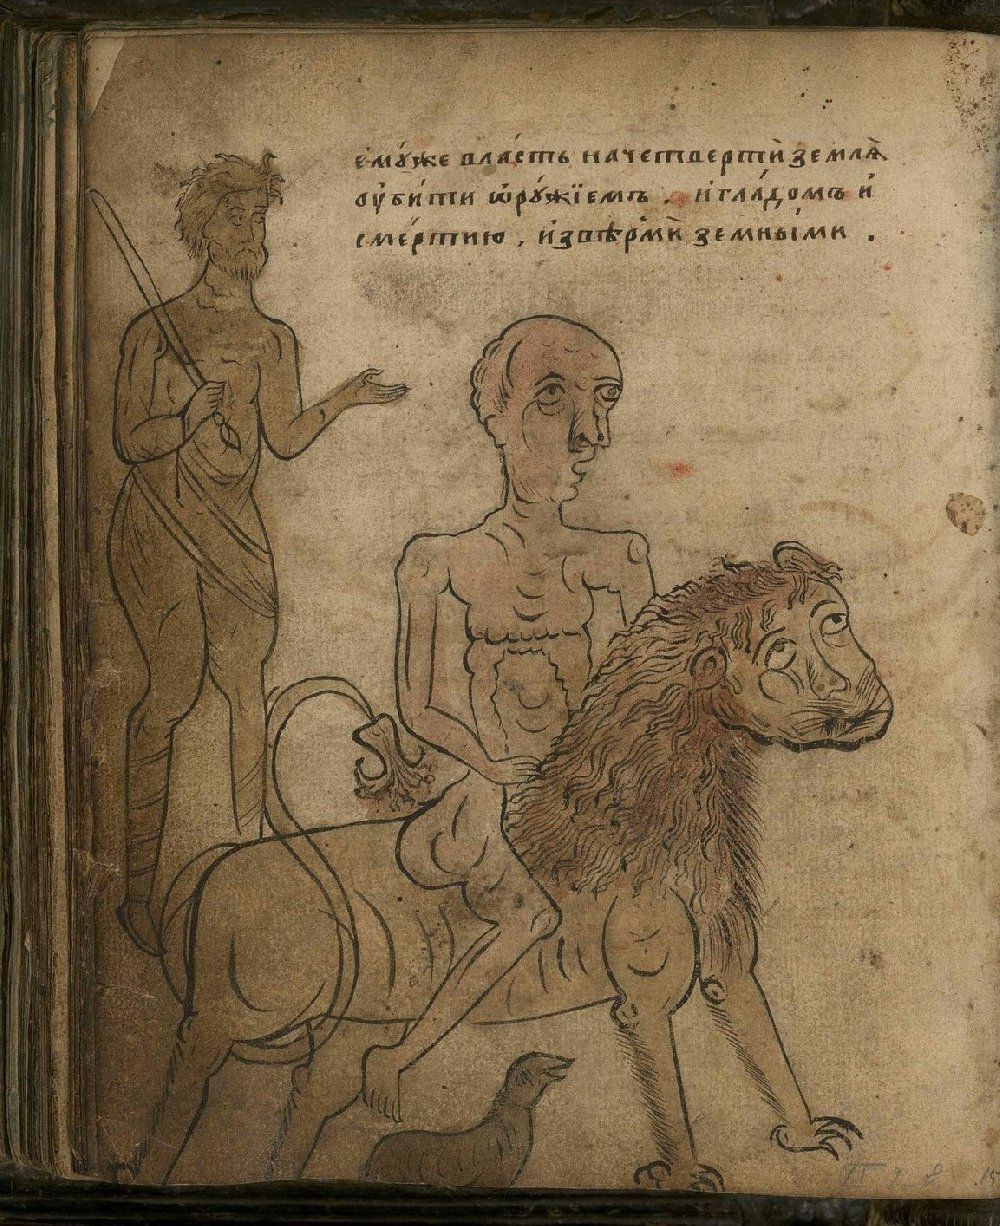 емꙋ́же вла́сть начетверти́ землѧ̀
ᲂу҆би́ти ѡ҆рꙋ́жїемъ . и҆гла́домъ и҆
сме́ртию , и҆звѣрмѝ земны́ми .